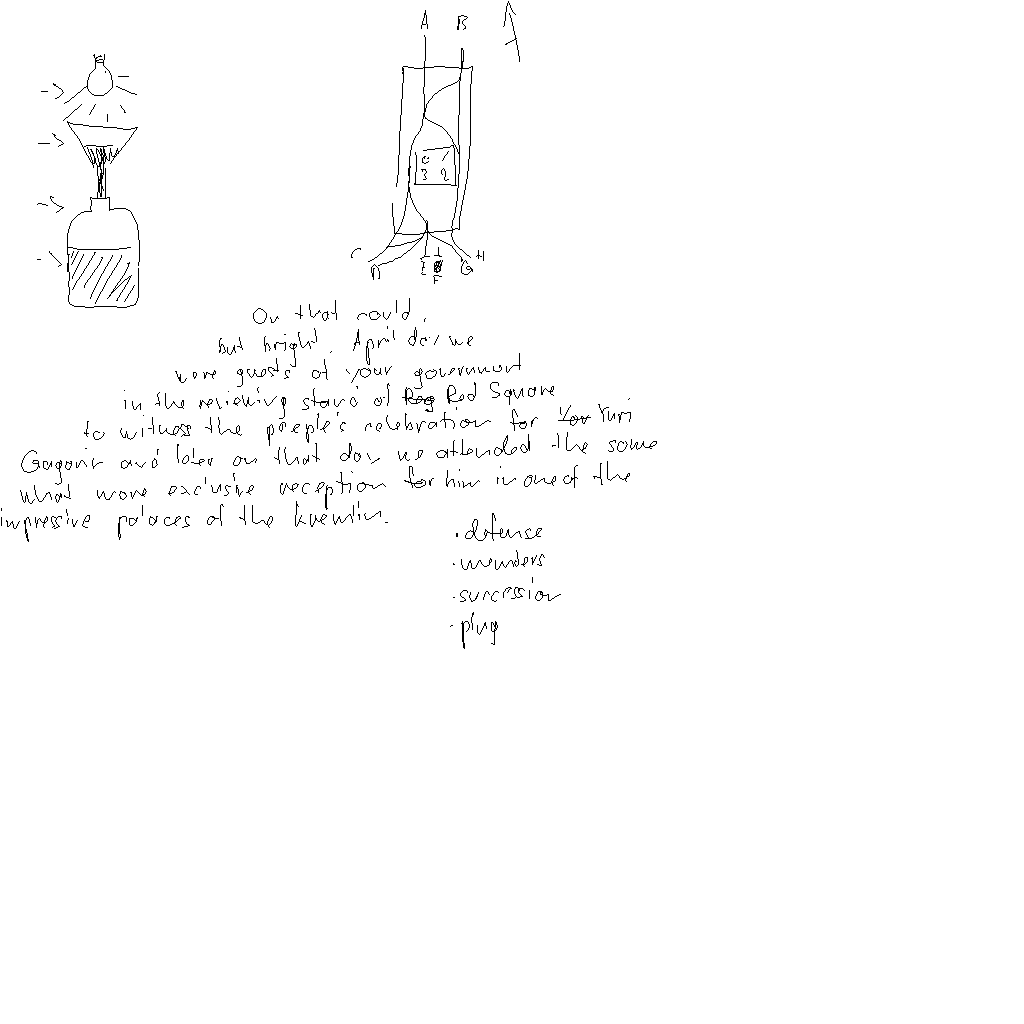 A B A
0 1
3 2
C D E F G H
On that could,
but bright April day we
were guests of your government
in the reviewing stand of Red Square
to witness the people's celebration for Yuri
Gagarin and later on that day we attended the some
what more exclusive reception for him in one of the
impressive palaces of the Kremlin.
· defense
· members
· succession
· plug